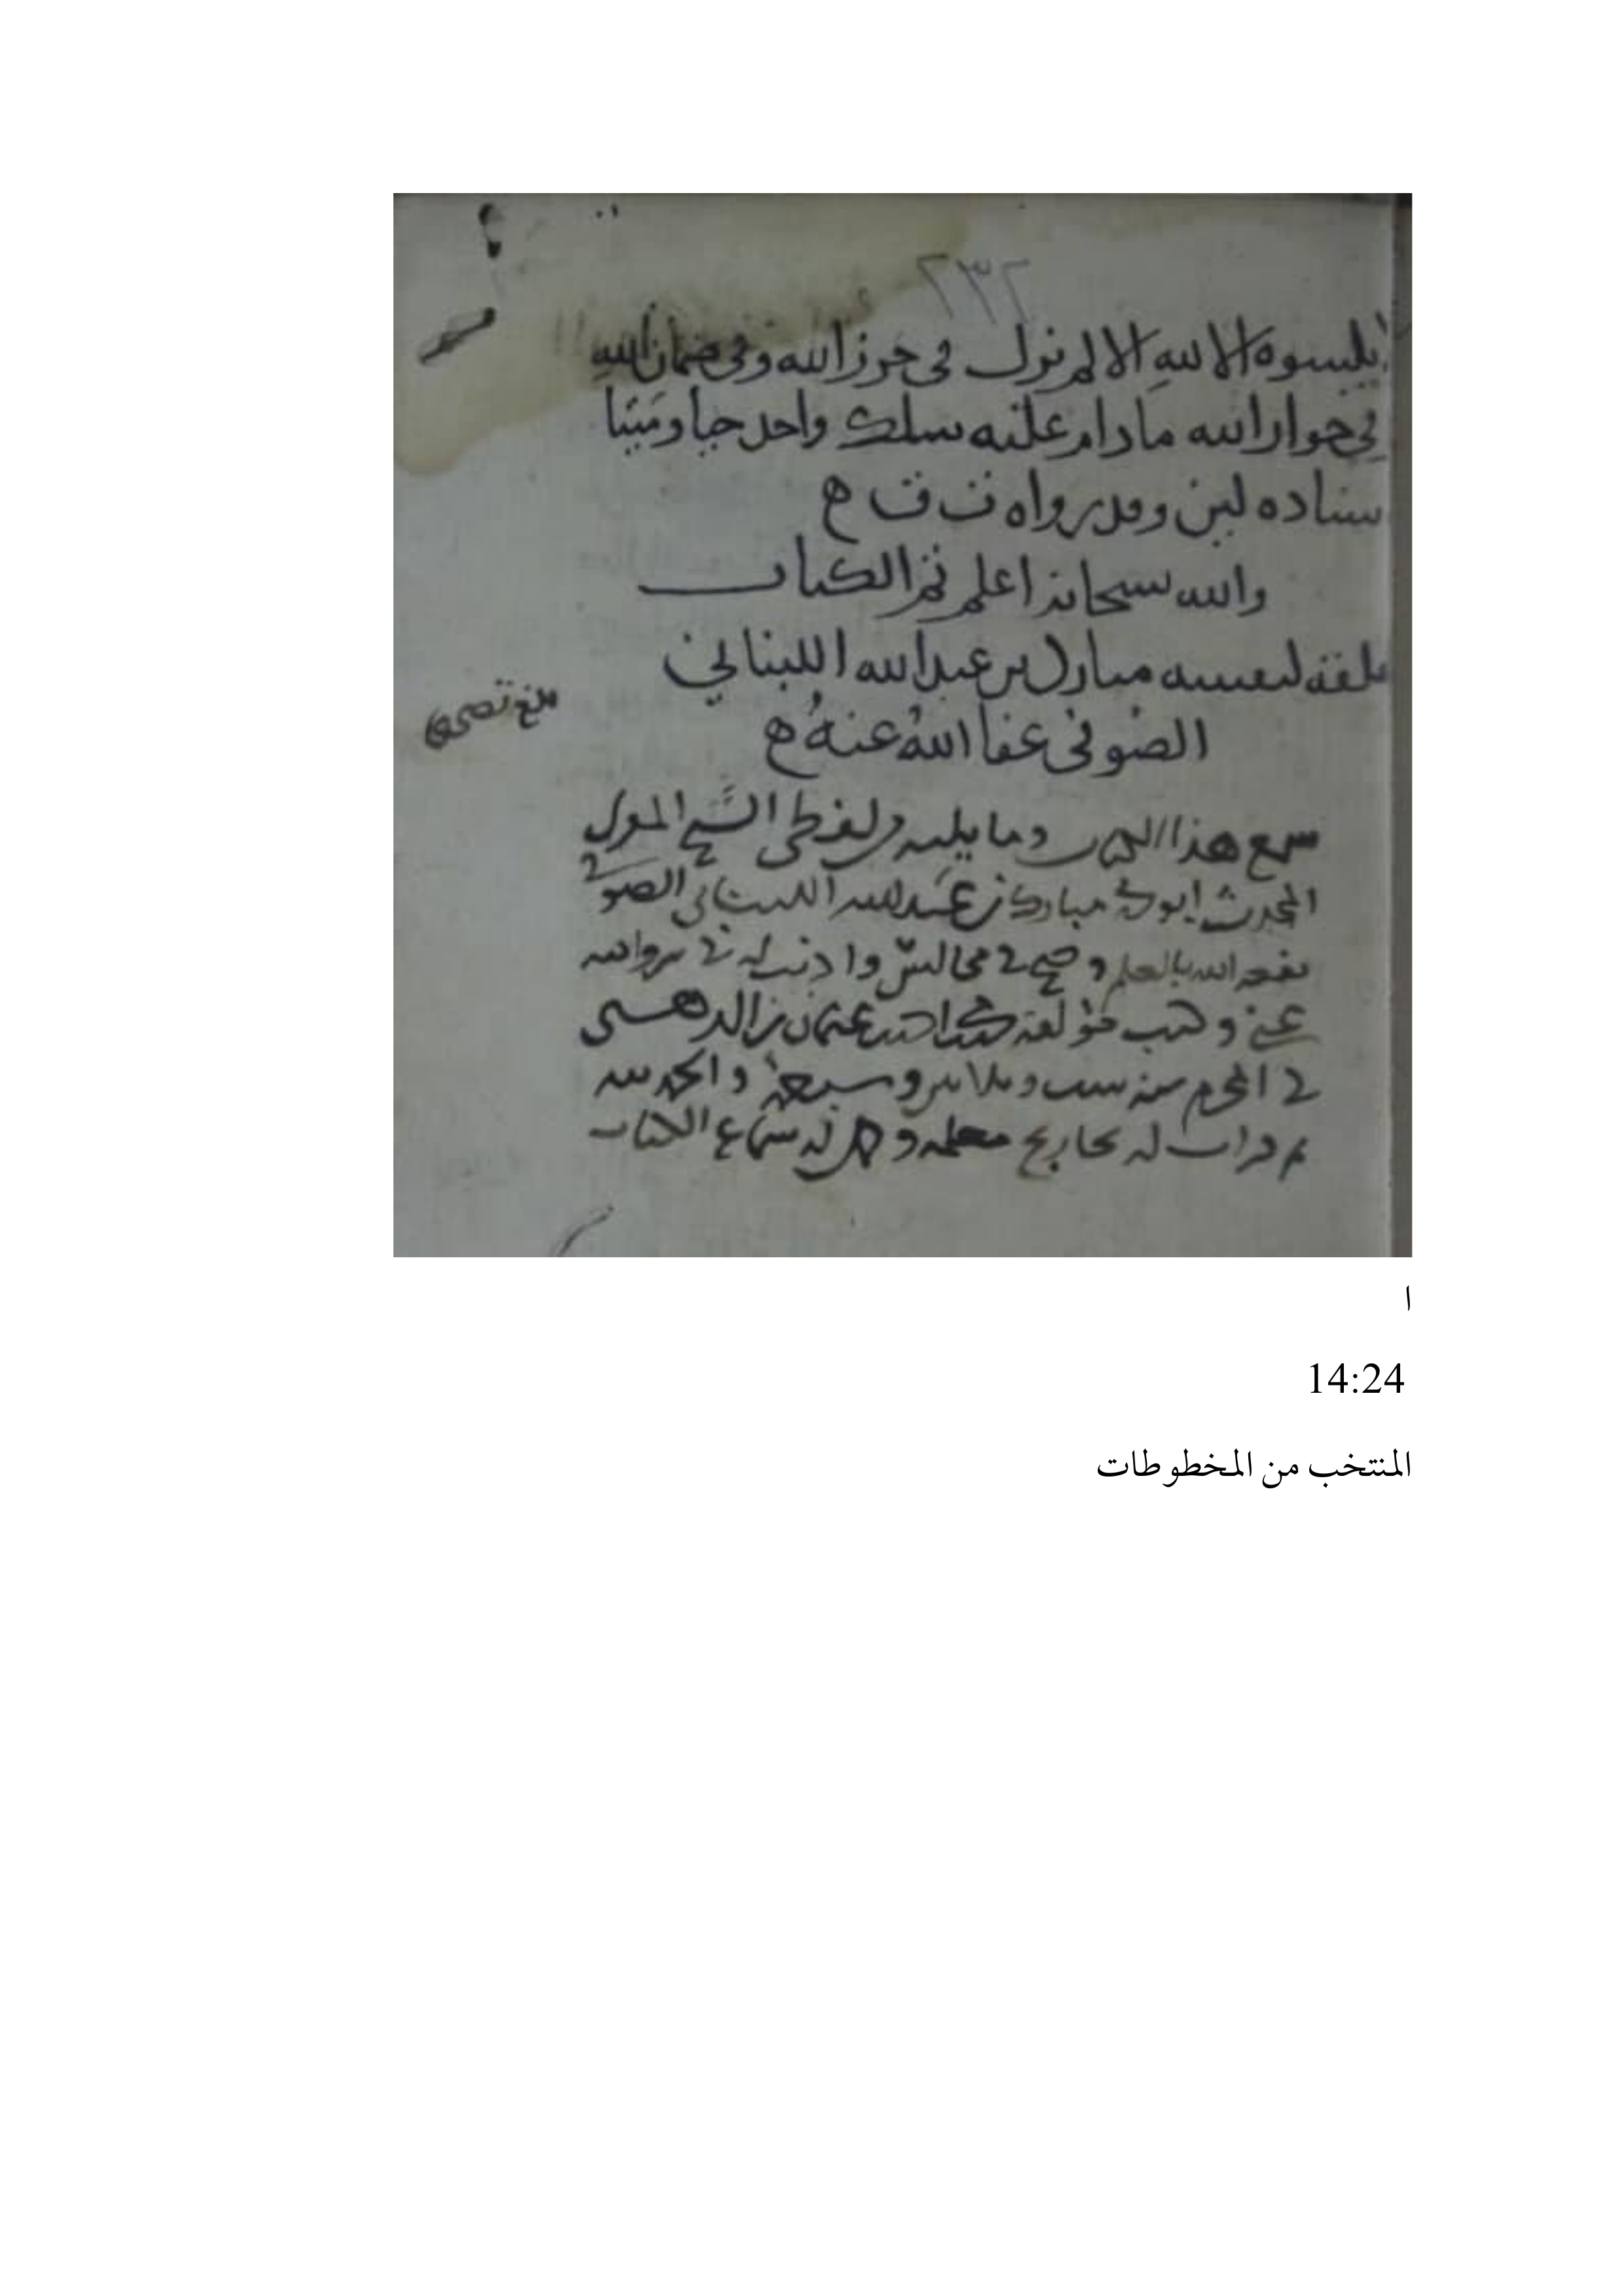 ٢٣٢
يلبسوه الا لله الا لم نزل في حرز الله وفي ضمان الله
في جوار الله ما دام عليه سلك واحد حيا وميتا
سناده لين وقد رواه ت ق ه
والله سبحانه اعلم تم الكتاب
علقه لنفسه مبارك بن عبد الله اللبناني
بلغ تصحيحا
الصوفي عفا الله عنه ه
سمع هذا الكتاب وما يليه من لفظي الشيخ
المحدث مبارك بن عبد الله اللبناني الصوفي
نفعه الله بالعلم وصح في مجالس واذنت له في روايته
عني وكتب مؤلفه محمد بن احمد بن عثمان بن الذهبي
في المحرم سنه ست وثلاثين وسبعمائة والحمد لله
سماع الكتاب
ا
14:24
المنتخب من المخطوطات